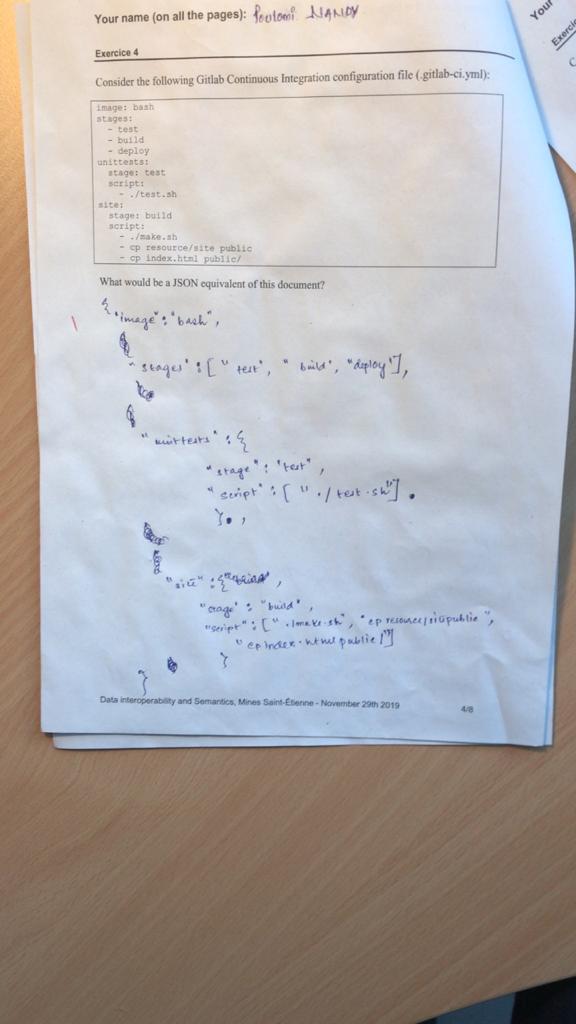 Your name (on all the pages): Poulomi NANDY
Exercice 4
Consider the following Gitlab Continuous Integration configuration file (.gitlab-ci.yml):
image: bash
stages:
- test
- build
- deploy
unittests:
stage: test
script:
- ./test.sh
site:
stage: build
script:
- ./make.sh
- cp resource/site public
- cp index.html public/
What would be a JSON equivalent of this document?
{"image": "bash",
"stages": ["test", "build", "deploy"],
"unittests": {
"stage": "test",
"script": ["./test.sh"].
},
"site": {
"stage": "build",
"script": ["./make.sh", "cp resource/site public",
"cp index.html public/"]
}
}
Data interoperability and Semantics, Mines Saint-Étienne - November 29th 2019
4/8
Your